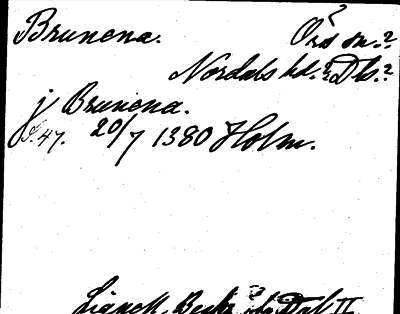 Brunena. Örs sn.?
Nordals hd.? Ds.?
j Brunena.
S. 47. 20/7 1380 Holm.
Lignell, Beskr. Dal II